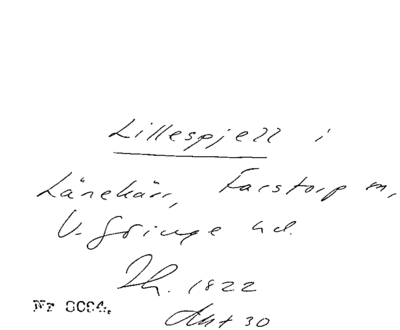 Lillespjell i
Länekärr, Farstorp m,
V. Göinge hd.
Lh. 1822
Akt 30
Nr 8084.